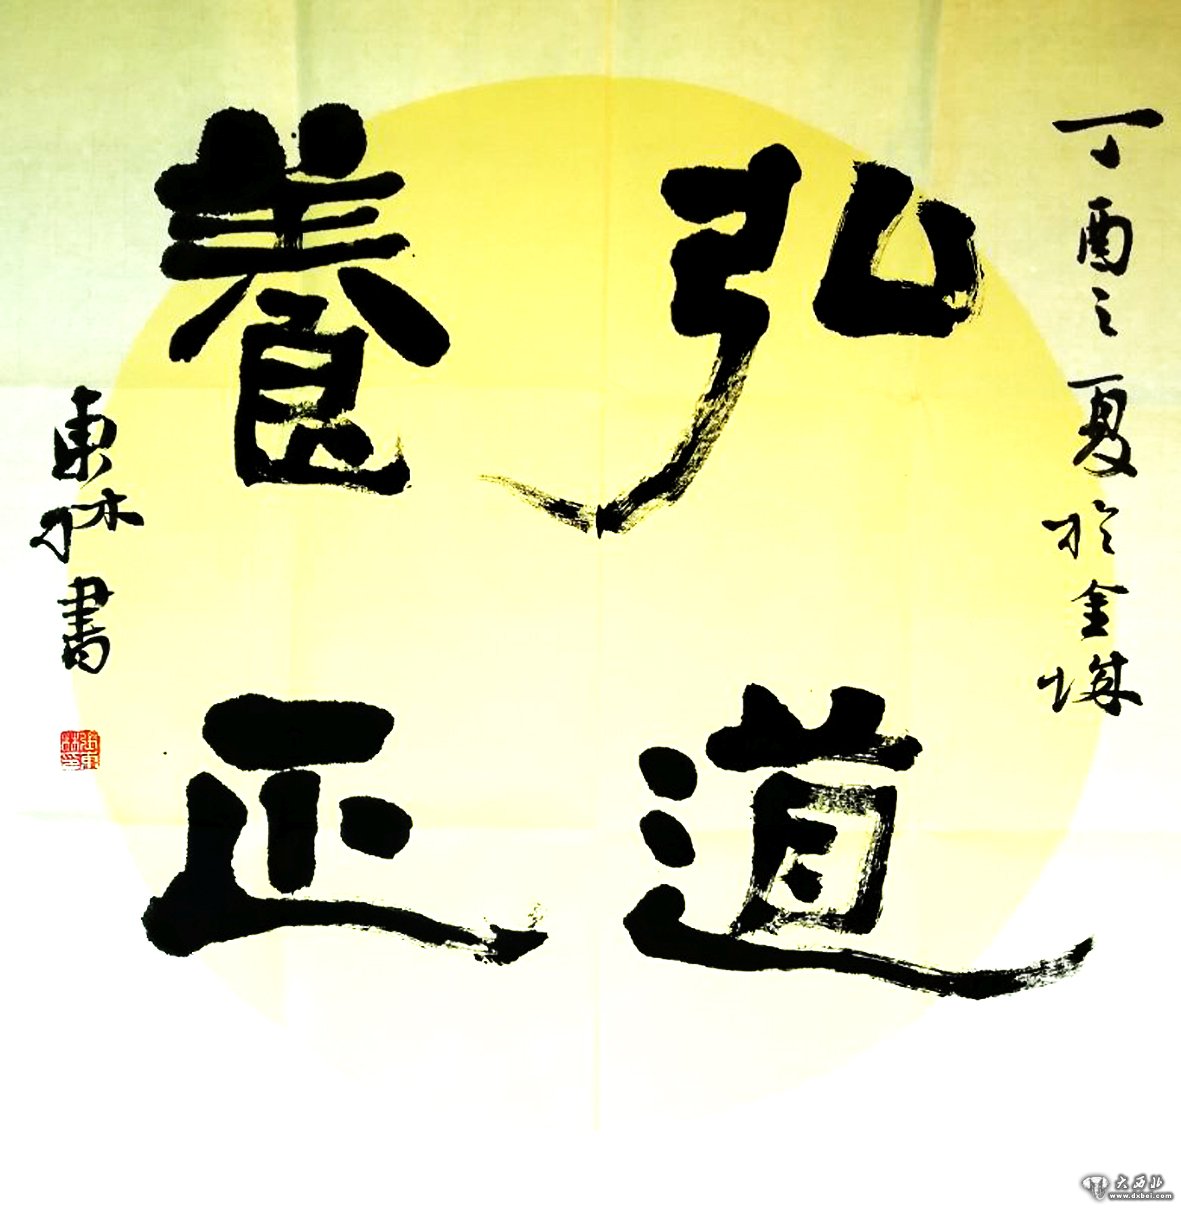 丁酉之夏於金城
弘道
養正
東林書
張東林印
大西北
www.dxbei.com